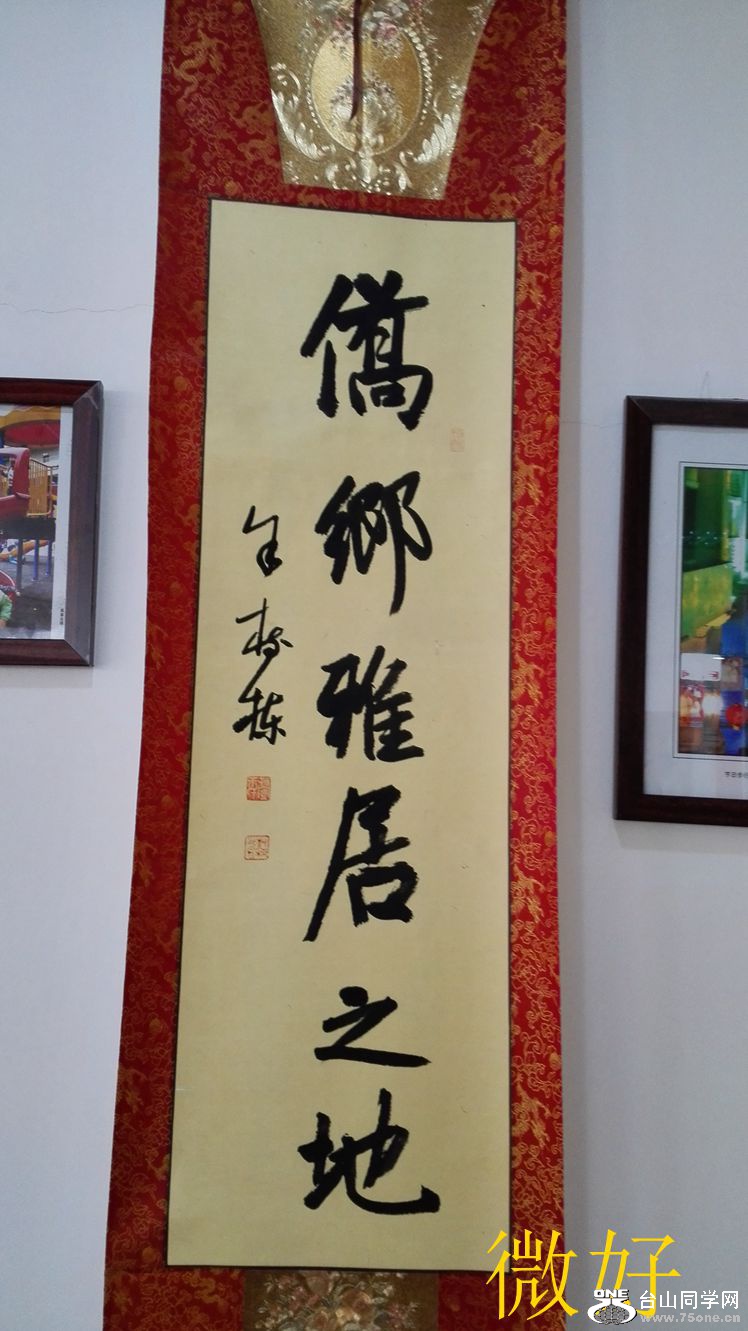 僑鄉雅居之地
微好
ONE
台山同学网
www.75one.cn